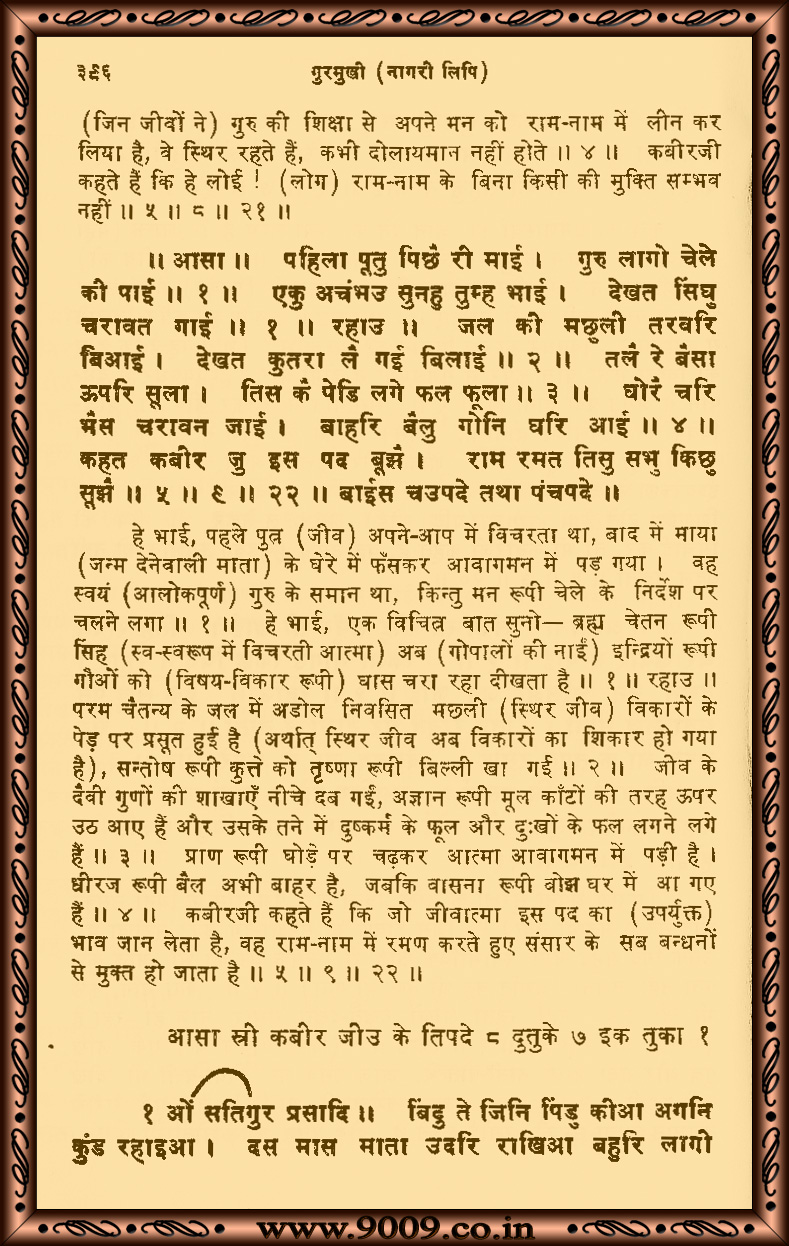 ३९६ गुरमुखी (नागरी लिपि)
(जिन जीवों ने) गुरु की शिक्षा से अपने मन को राम-नाम में लीन कर
लिया है, वे स्थिर रहते हैं, कभी दोलायमान नहीं होते ॥ ४ ॥ कबीरजी
कहते हैं कि हे लोई ! (लोग) राम-नाम के बिना किसी की मुक्ति सम्भव
नहीं ॥ ५ ॥ ८ ॥ २१ ॥
॥ आसा ॥ पहिला पूतु पिछै री माई । गुरु लागो चेले
की पाई ॥ १ ॥ एकु अचंभउ सुनहु तुम्ह भाई । देखत सिंघु
चरावत गाई ॥ १ ॥ रहाउ ॥ जल की मछुली तरवरि
बिआई । देखत कुतरा लै गई बिलाई ॥ २ ॥ तलै रे बैसा
ऊपरि सूला । तिस कै पेडि लगे फल फूला ॥ ३ ॥ घोरै चरि
भैस चरावन जाई । बाहरि बैलु गोनि घरि आई ॥ ४ ॥
कहत कबीर जु इस पद बूझै । राम रमत तिसु सभु किछु
सूझै ॥ ५ ॥ ९ ॥ २२ ॥ बाईस चउपदे तथा पंचपदे ॥
हे भाई, पहले पुत्र (जीव) अपने-आप में विचरता था, बाद में माया
(जन्म देनेवाली माता) के घेरे में फँसकर आवागमन में पड़ गया । वह
स्वयं (आलोकपूर्ण) गुरु के समान था, किन्तु मन रूपी चेले के निर्देश पर
चलने लगा ॥ १ ॥ हे भाई, एक विचित्र बात सुनो— ब्रह्म चेतन रूपी
सिंह (स्व-स्वरूप में विचरती आत्मा) अब (गोपालों की नाईं) इन्द्रियों रूपी
गौओं को (विषय-विकार रूपी) घास चरा रहा दीखता है ॥ १ ॥ रहाउ ॥
परम चैतन्य के जल में अडोल निवसित मछली (स्थिर जीव) विकारों के
पेड़ पर प्रसूत हुई है (अर्थात् स्थिर जीव अब विकारों का शिकार हो गया
है), सन्तोष रूपी कुत्ते को तृष्णा रूपी बिल्ली खा गई ॥ २ ॥ जीव के
दैवी गुणों की शाखाएँ नीचे दब गईं, अज्ञान रूपी मूल काँटों की तरह ऊपर
उठ आए हैं और उसके तने में दुष्कर्म के फूल और दुःखों के फल लगने लगे
हैं ॥ ३ ॥ प्राण रूपी घोड़े पर चढ़कर आत्मा आवागमन में पड़ी है ।
धीरज रूपी बैल अभी बाहर है, जबकि वासना रूपी वोझ घर में आ गए
हैं ॥ ४ ॥ कबीरजी कहते हैं कि जो जीवात्मा इस पद का (उपर्युक्त)
भाव जान लेता है, वह राम-नाम में रमण करते हुए संसार के सब बन्धनों
से मुक्त हो जाता है ॥ ५ ॥ ९ ॥ २२ ॥
आसा स्री कबीर जीउ के तिपदे ८ दुतुके ७ इक तुका १
१ ओं सतिगुर प्रसादि ॥ बिंदु ते जिनि पिंडु कीआ अगनि
कुंड रहाइआ । दस मास माता उदरि राखिआ बहुरि लागी
www.9009.co.in